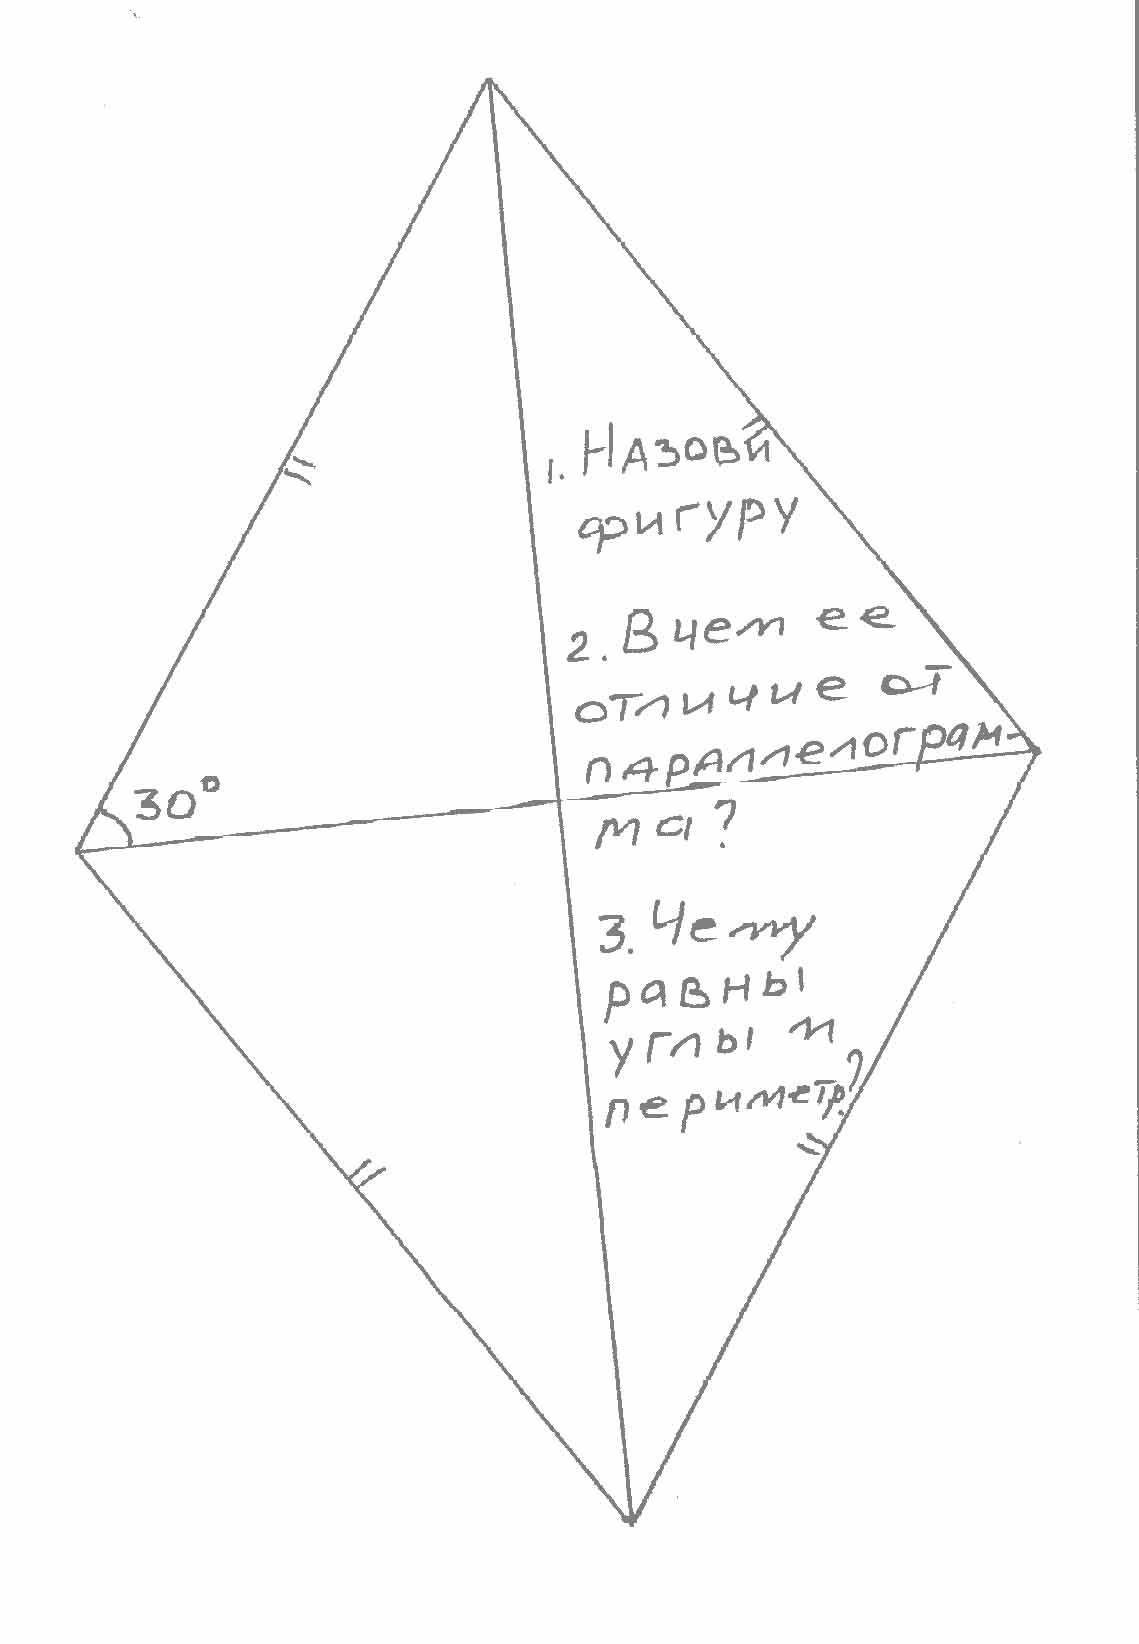 1. Назови
фигуру
2. В чем ее
отличие от
параллелограм-
ма?
30°
3. Чему
равны
углы и
периметр?